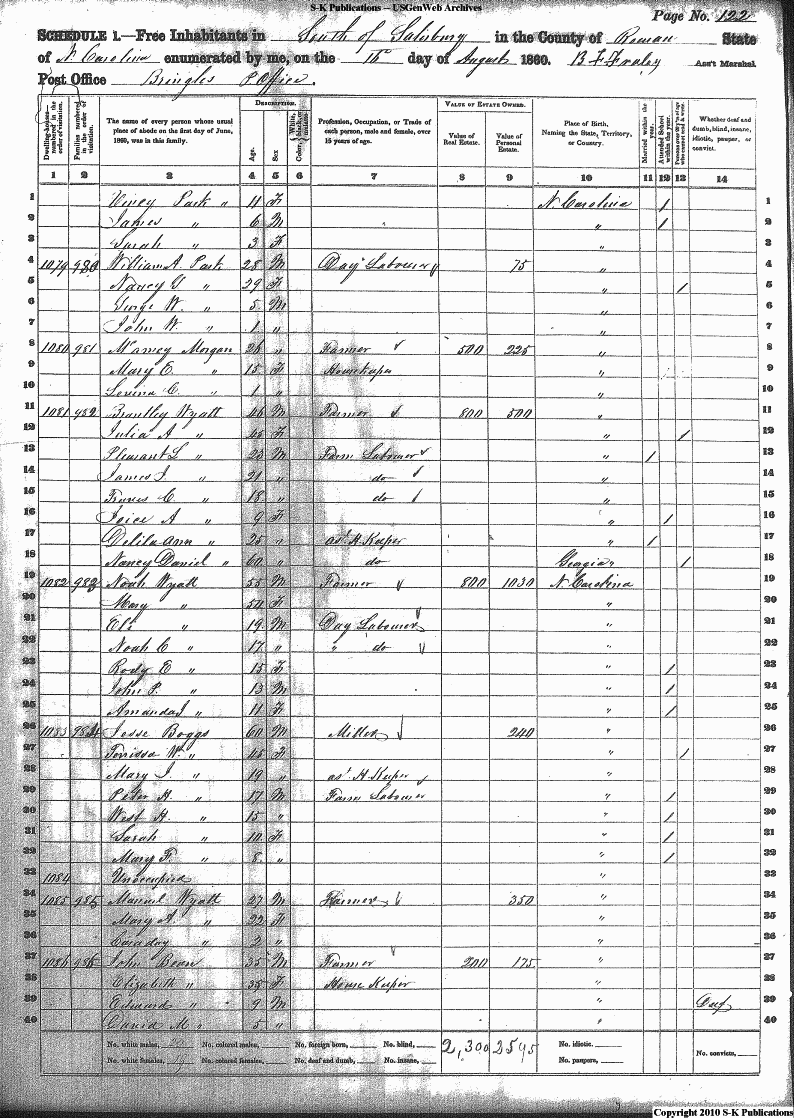 S-K Publications -- USGenWeb Archives
Page No. 122
SCHEDULE 1.—Free Inhabitants in South of Salisbury in the County of Rowan State
of N. Carolina enumerated by me, on the day of August 1860. B F Fraley Ass't Marshal
Post Office Bringles P Office.
Dwelling-houses numbered in the order of visitation.
Families numbered in the order of visitation.
The name of every person whose usual place of abode on the first day of June, 1860, was in this family.
DESCRIPTION.
Age.
Sex
Color,
Profession, Occupation, or Trade of each person, male and female, over 15 years of age.
VALUE OF ESTATE OWNED.
Value of Real Estate.
Value of Personal Estate.
Place of Birth, Naming the State, Territory, or Country.
Married within the year.
Attended School within the year.
Whether deaf and dumb, blind, insane, idiotic, pauper, or convict.
1 2 3 4 5 6 7 8 9 10 11 12 13 14
1 Vincy Park " 11 F N. Carolina / 1
2 James " 6 M " / 2
3 Sarah " 3 F " 3
4 1079 980 William A. Park 28 M Day Labourer 75 " 4
5 Nancy " 29 F " / 5
6 George W. " 5 M " 6
7 John W. " 1 " " 7
8 1080 981 Morgan 26 " Farmer 500 225 " 8
9 Mary E. " 15 F Housekeper " 9
10 C. " 1 " " 10
11 1081 982 Brantley Wyatt 46 M Farmer 800 500 " 11
12 Julia A " 45 F " / 12
13 Pleasant L " 23 M Farm Labourer " / 13
14 James J " 21 " do " 14
15 C " 18 " do " 15
16 Joice A " 9 F " / 16
17 Delila Ann " 25 " as't H. Keeper " / 17
18 Nancy Daniel " 60 " do Georgia / 18
19 1082 983 Noah Wyatt 55 M Farmer 800 1030 N. Carolina 19
20 Mary " F " 20
21 Eli " 19 M Day Labourer " 21
22 Noah C " 17 " " do " 22
23 Rody E " 15 F " / 23
24 John P. " 13 M " / 24
25 Amanda J " 11 F " / 25
26 1083 984 Jesse Boggs 60 M Miller 240 " 26
27 " 45 F " / 27
28 Mary J. " 19 " as't H. Keeper " 28
29 Peter H. " 17 M Farm Labourer " / 29
30 West H. " 15 " " / 30
31 Sarah " 10 F " / 31
32 Mary F. " 8 " " / 32
33 1084 Unoccupied " 33
34 1085 985 Manuel Wyatt 27 M Farmer 350 " 34
35 Mary A. " 22 F " 35
36 " 2 " " 36
37 1086 986 John Bean 35 M Farmer 200 175 " 37
38 Elizabeth " 35 F House Keeper " 38
39 Edward " 9 M " Deaf 39
40 David M " 5 " " 40
No. white males, No. colored males, No. foreign born, No. blind, 2,300 2595 No. idiotic,
No. white females, 19 No. colored females, No. deaf and dumb, No. insane, No. paupers, No. convicts,
Copyright 2010 S-K Publications